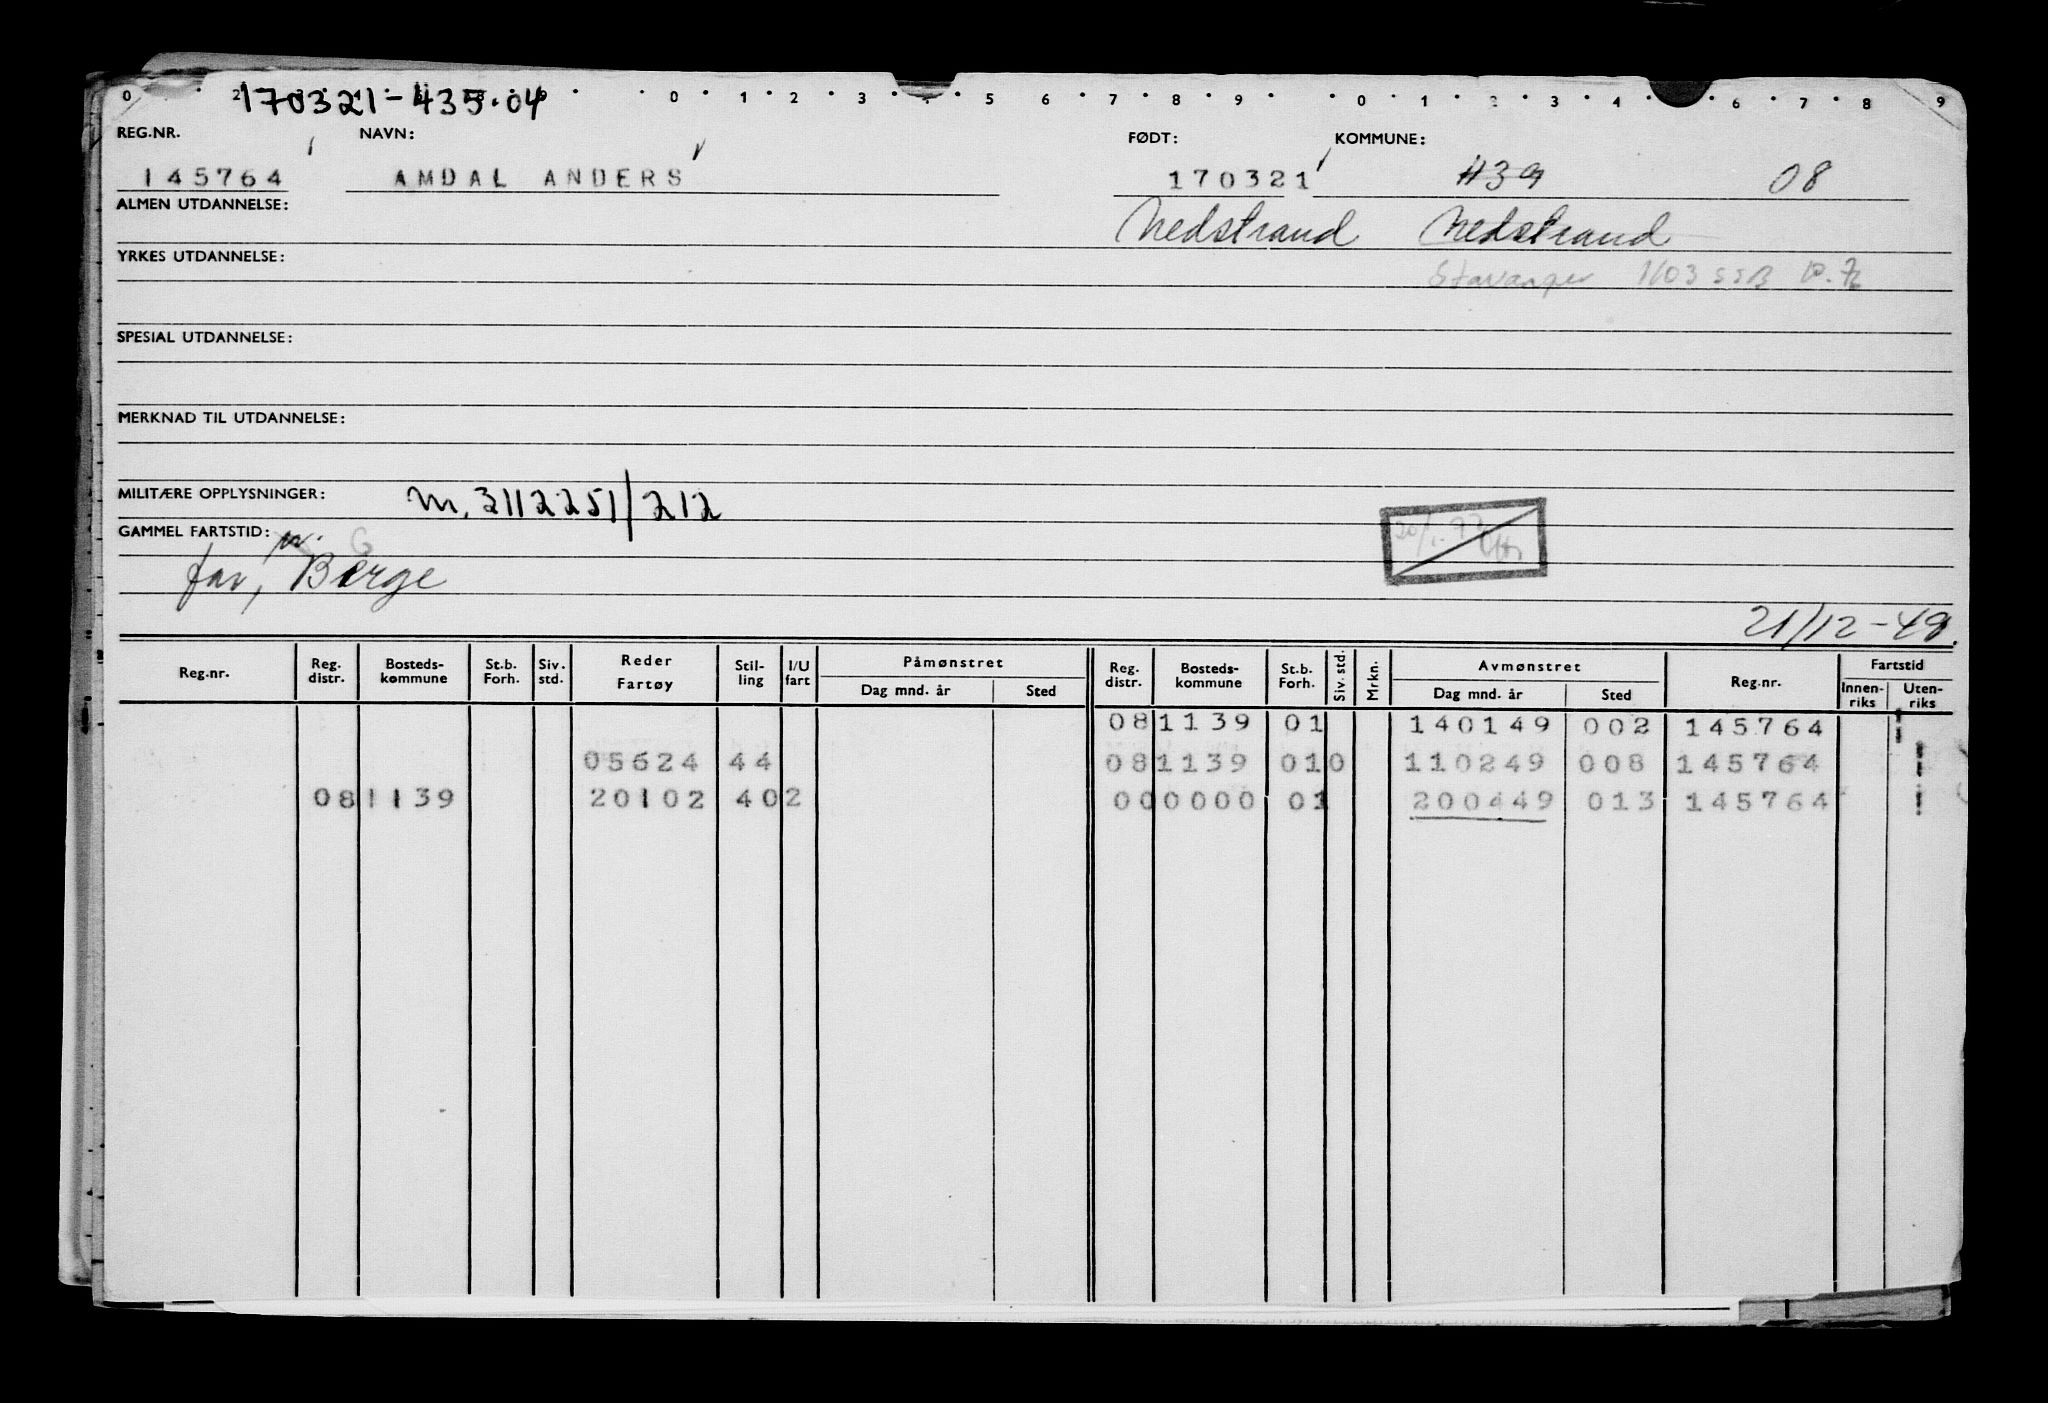 170321-435.04
0 2 0 1 2 3 4 5 6 7 8 9 0 1 2 3 4 6 7 8 9
REG.NR. NAVN: FØDT: KOMMUNE:
145764 AMDAL ANDERS 170321 1139 08
ALMEN UTDANNELSE: Nedstrand Nedstrand
YRKES UTDANNELSE: Stavanger 1103 SSB
SPESIAL UTDANNELSE:
MERKNAD TIL UTDANNELSE:
MILITÆRE OPPLYSNINGER: M. 3112251/212
GAMMEL FARTSTID:
far, Børge
21/12-48.
Reg.nr. Reg. distr. Bosteds-kommune St.b. Forh. Siv. std. Reder Fartøy Stil-ling I/U fart Påmønstret Dag mnd. år Sted Reg. distr. Bosteds-kommune St.b. Forh. Siv. std. Mrkn. Avmønstret Dag mnd. år Sted Reg.nr. Fartstid Innen-riks Uten-riks
081139 01 140149 002 145764
05624 44 081139 010 110249 008 145764
081139 20102 402 000000 01 200449 013 145764